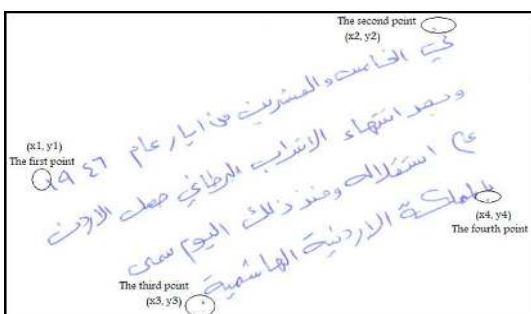 The second point
(x2, y2)
في الخامس والعشرين من ايار عام ١٩٤٦
وبعد انتهاء الانتداب البرطاني حصل الاردن
(x1, y1)
The first point
على استقلاله ومنذ ذلك اليوم سمي
بالمملكة الاردنية الهاشمية
(x4, y4)
The fourth point
The third point
(x3, y3)